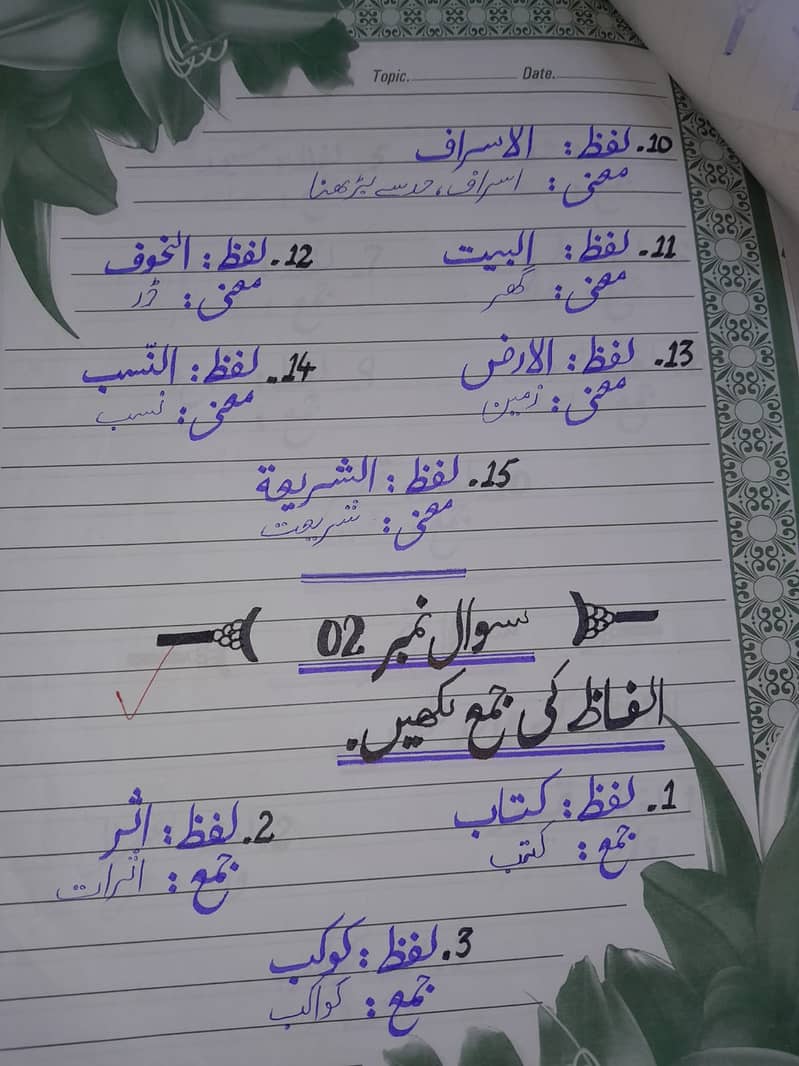 Topic. Date.
10. لفظ: الاسراف
معنی: اسراف، حد سے بڑھنا
11. لفظ: البیت 12. لفظ: الخوف
معنی: گھر معنی: ڈر
13. لفظ: الارض 14. لفظ: النّسب
معنی: زمین معنی: نسب
15. لفظ: الشریعة
معنی: شریعت
سوال نمبر 02
الفاظ کی جمع لکھیں.
1. لفظ: کتاب 2. لفظ: اثر
جمع: کتب جمع: اثرات
3. لفظ: کوکب
جمع: کواکب